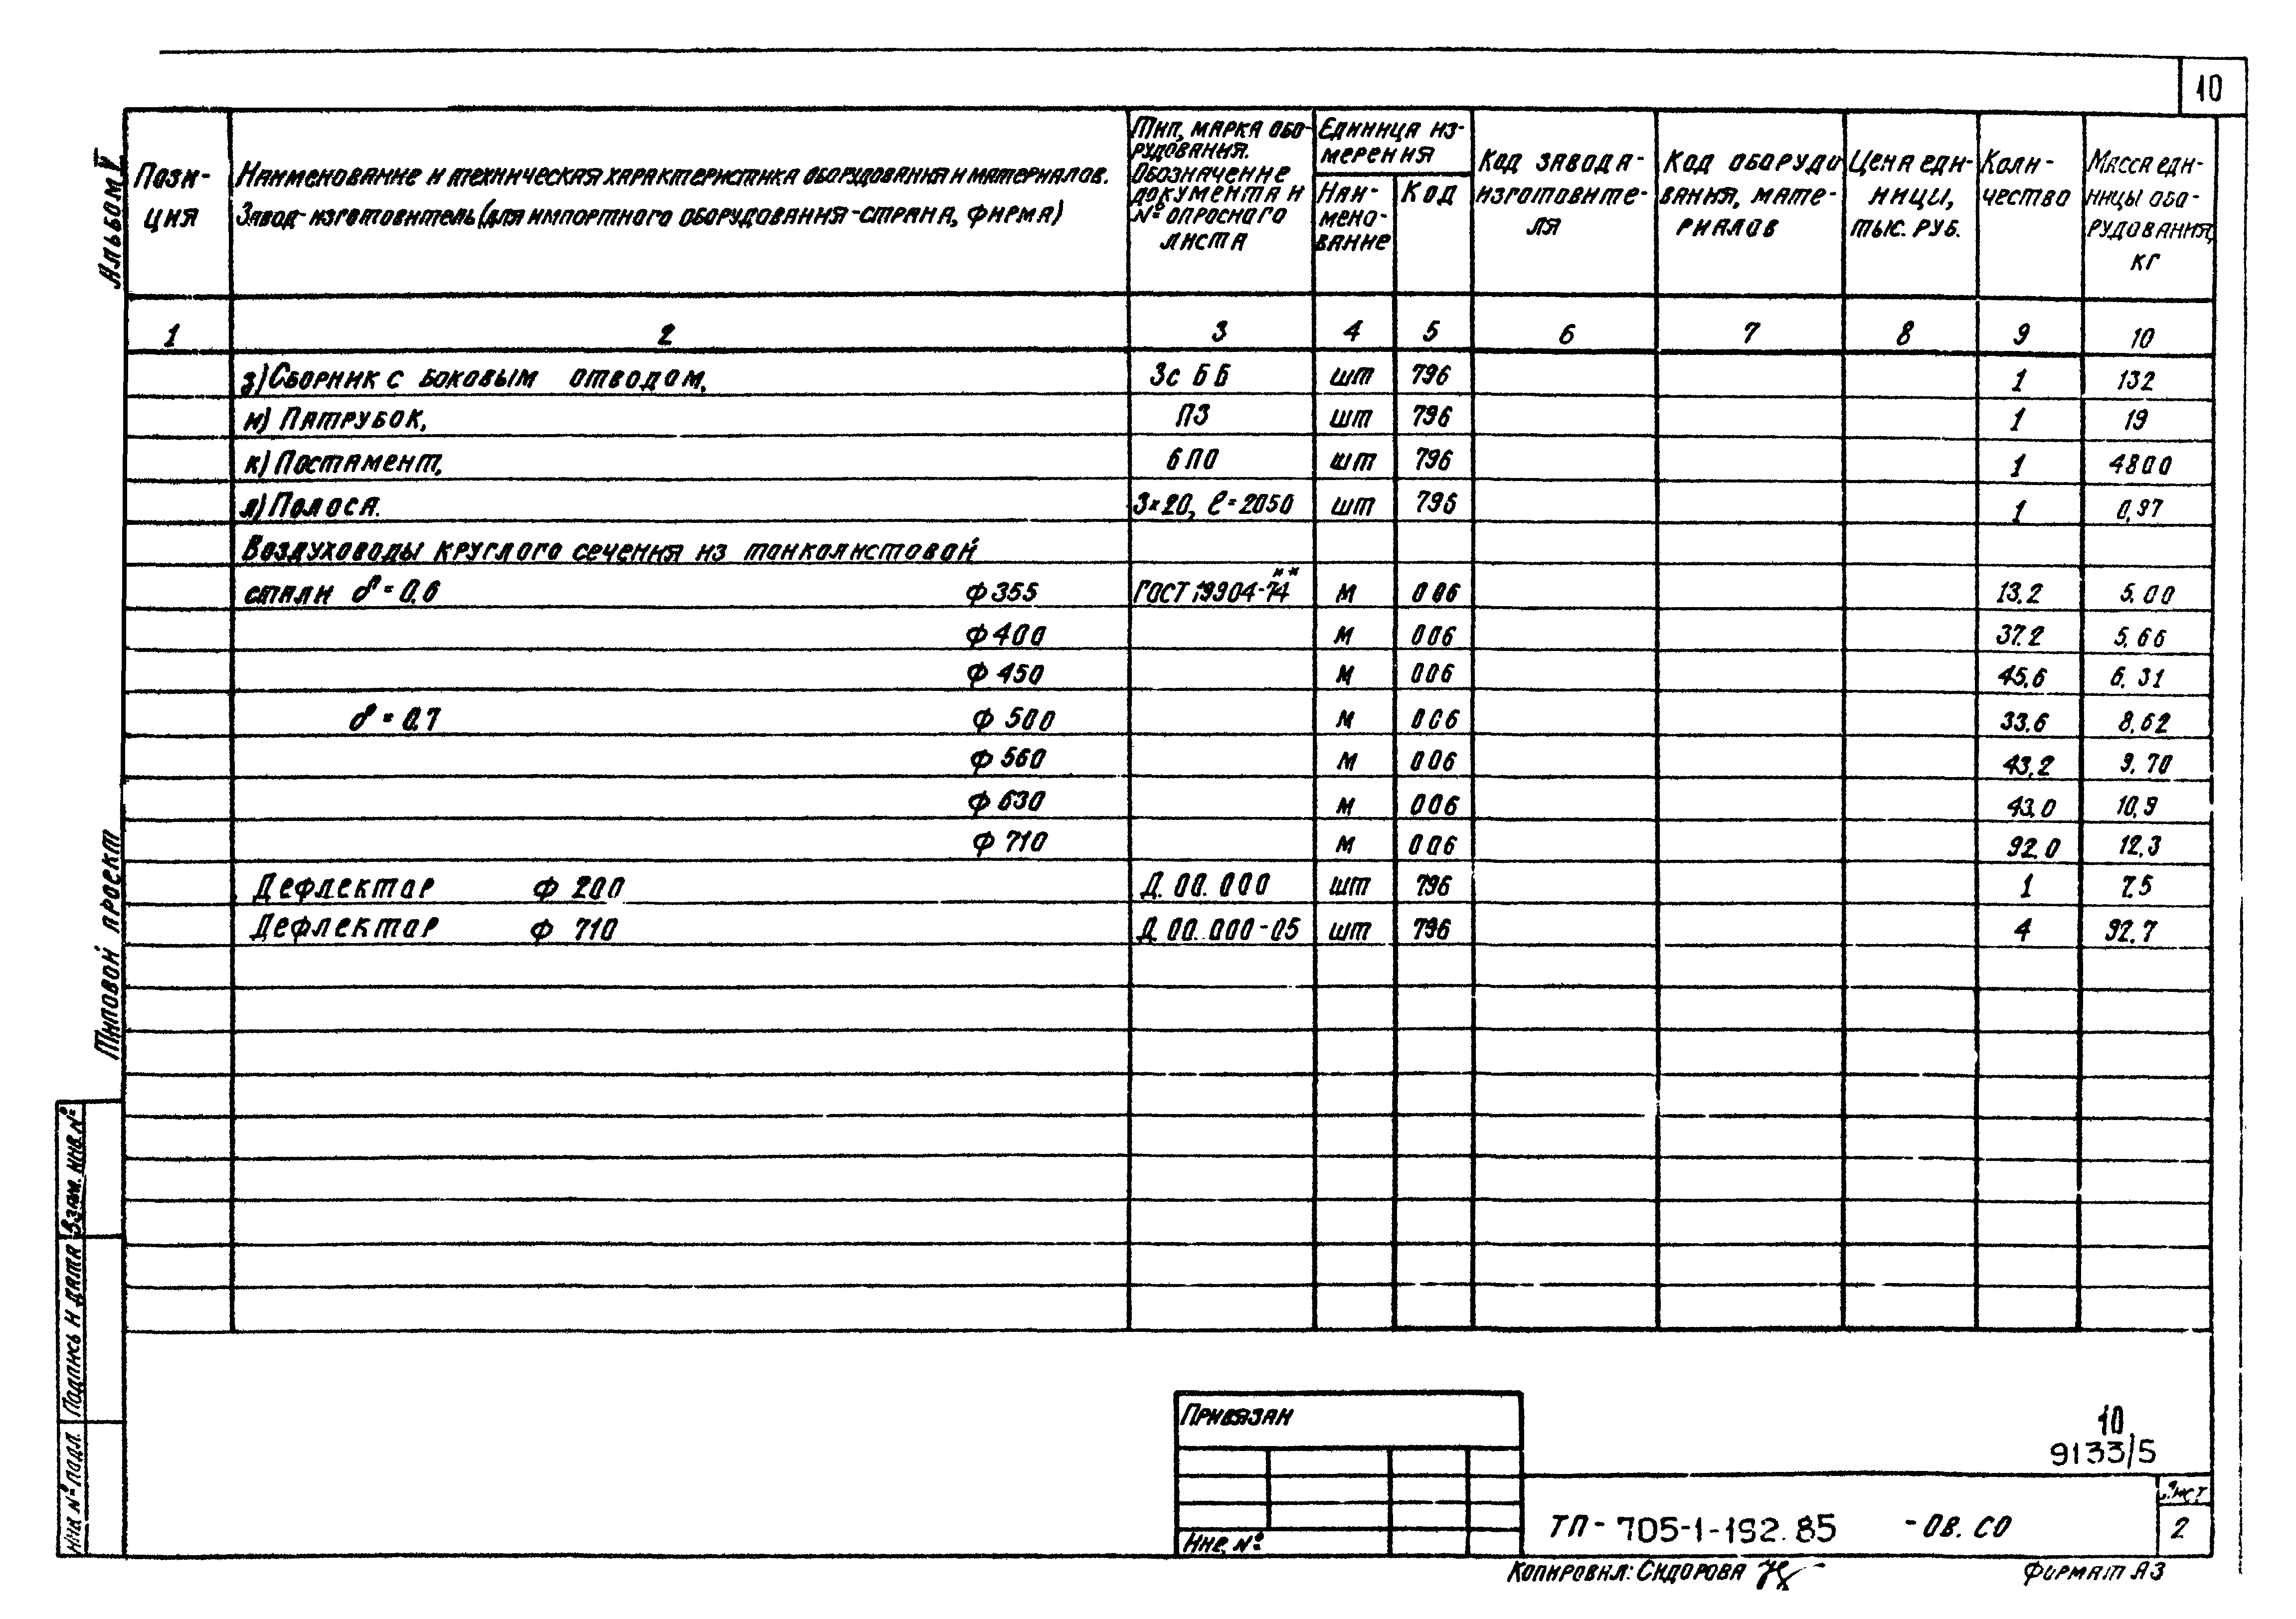 10
Альбом V
Типовой проект
Пози-
ция
Наименование и техническая характеристика оборудования и материалов.
Завод-изготовитель (для импортного оборудования-страна, фирма)
Тип, марка обо-
рудования.
Обозначение
документа и
№ опросного
листа
Единица из-
мерения
Наи-
мено-
вание
Код
Код завода-
изготовите-
ля
Код оборудо
вания, мате-
риалов
Цена еди-
ницы,
тыс. руб.
Коли-
чество
Масса еди-
ницы обо-
рудования,
кг
1 2 3 4 5 6 7 8 9 10
з) Сборник с боковым отводом, 3с ББ шт 796 1 132
и) Патрубок, П3 шт 796 1 19
к) Постамент, 6П0 шт 796 1 4800
л) Полоса. 3×20, ℓ=2050 шт 796 1 0,97
Воздуховоды круглого сечения из тонколистовой
стали δ=0,6 ф355 ГОСТ 19904-74** м 006 13,2 5,00
ф400 м 006 37,2 5,66
ф450 м 006 45,6 6,31
δ=0,7 ф500 м 006 33,6 8,62
ф560 м 006 43,2 9,70
ф630 м 006 43,0 10,9
ф710 м 006 92,0 12,3
Дефлектор ф 200 Д.00.000 шт 796 1 7,5
Дефлектор ф 710 Д.00.000-05 шт 796 4 92,7
Взам. инв. №
Подпись и дата
Инв № подл.
Привязан
Инв. №
10
9133/5
ТП-705-1-192.85 -ОВ.СО
Лист
2
Копировал: Сидорова
Формат А3